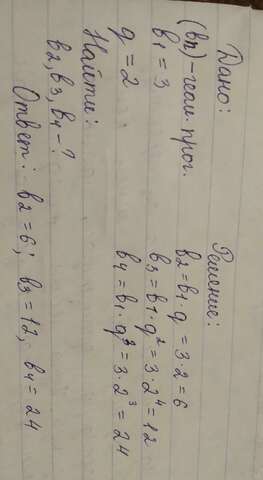 Дано:
(bn) - геом. прог.
b1 = 3
q = 2
Найти:
b2, b3, b4 - ?
Решение:
b2 = b1 · q = 3 · 2 = 6
b3 = b1 · q² = 3 · 2⁴ = 12
b4 = b1 · q³ = 3 · 2³ = 24
Ответ: b2 = 6; b3 = 12; b4 = 24